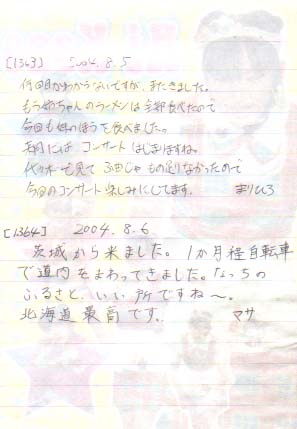 [1363] 2004.8.5
何回目かわからないですが、またきました。
もうゆちゃんのラーメンは全部食べたので
今回も のほうを食べました。
コンサートはじまりますね。
代々木で見て ふ曲じゃもの足りなかったので
今回のコンサート楽しみにしてます。 まりひろ
[1364] 2004.8.6
茨城から来ました。1か月程自転車
で道内をまわってきました。なっちの
ふるさと、いい所ですね〜。
北海道最高です。 マサ